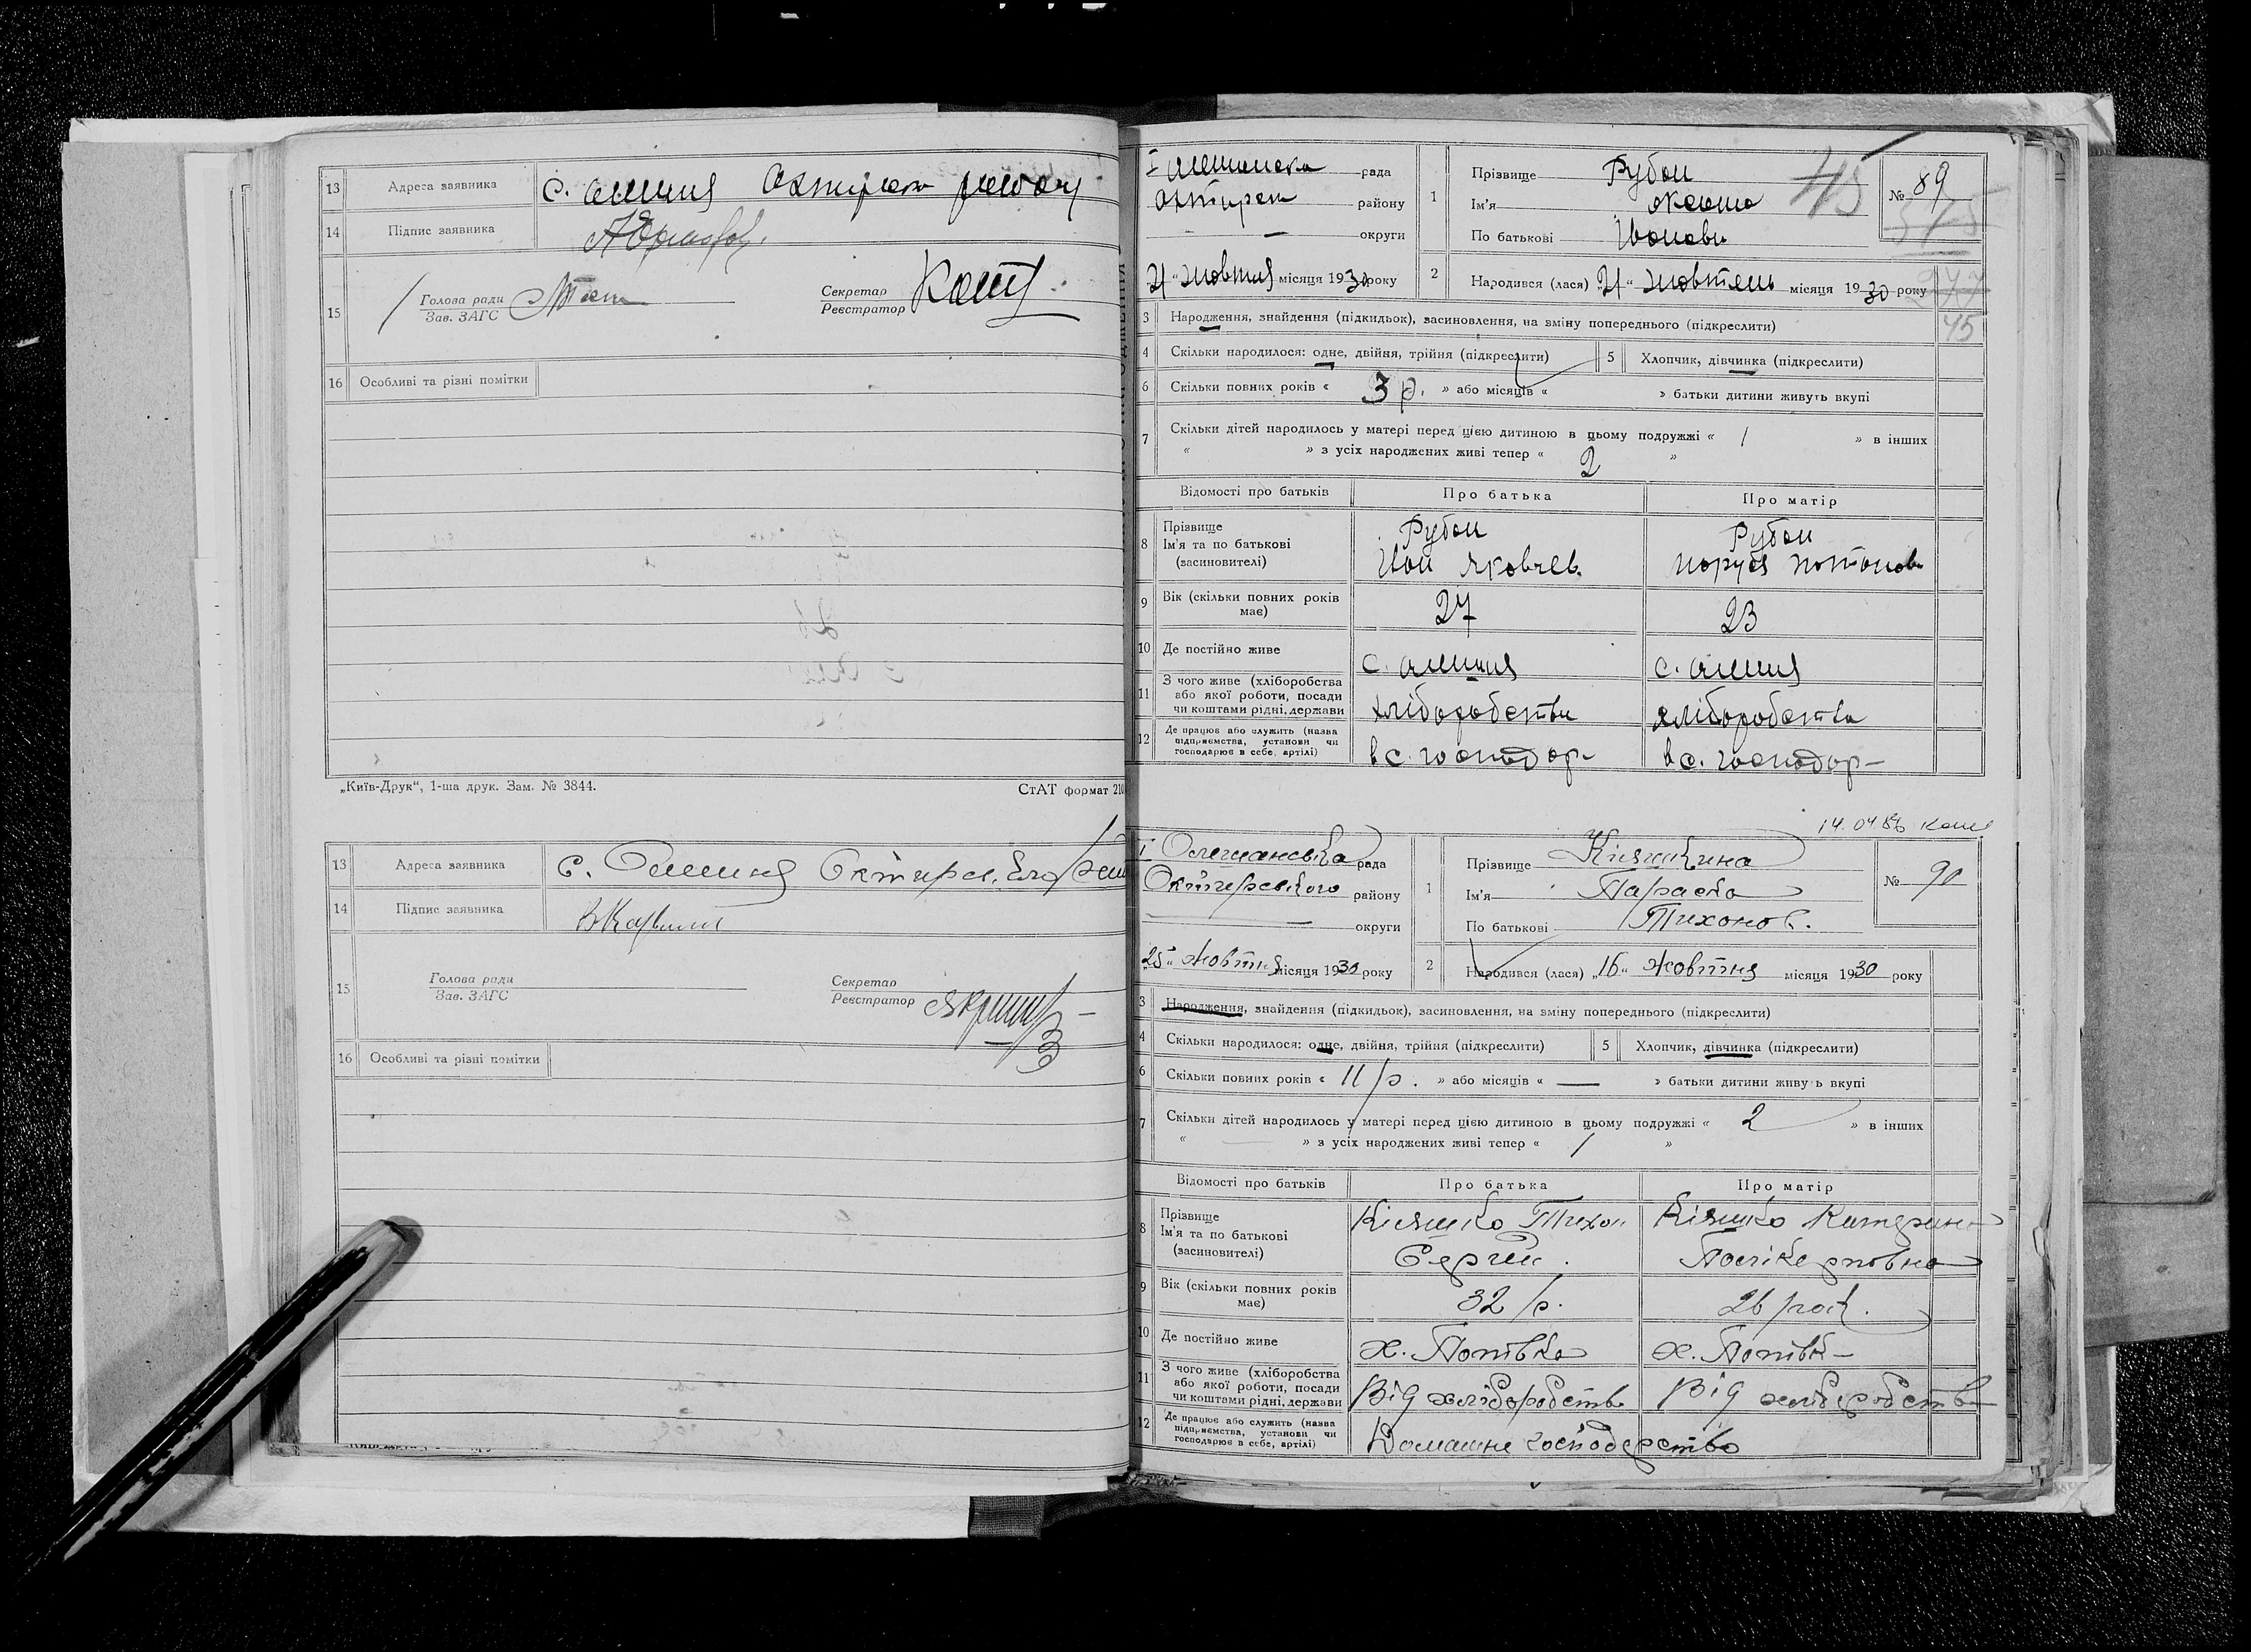 13 Адреса заявника с. Олешня Охтирськ району
14 Підпис заявника
15 Голова ради
Зав. ЗАГС
Секретар
Реєстратор
16 Особливі та різні помітки
„Київ-Друк“, 1-ша друк. Зам. № 3844.
СтАТ формат 210
13 Адреса заявника с. Олешня Охтирськ.
14 Підпис заявника
15 Голова ради
Зав. ЗАГС
Секретар
Реєстратор
16 Особливі та різні помітки
I Олешанська рада
Охтирськ району
— округи
21 “ жовтня місяця 1930 року
1 Прізвище Рубан
Ім'я
По батькові Іванови
№ 89
45
2 Народився (лася) „21“ жовтень місяця 1930 року
3 Народження, знайдення (підкидьок), засиновлення, на зміну попереднього (підкреслити)
45
4 Скільки народилося: одне, двійня, трійня (підкреслити) 5 Хлопчик, дівчинка (підкреслити)
6 Скільки повних років « 3 р. » або місяців « » батьки дитини живуть вкупі
7 Скільки дітей народилось у матері перед цією дитиною в цьому подружжі « 1 » в інших
« » з усіх народжених живі тепер « 2 »
Відомості про батьків Про батька Про матір
8 Прізвище Рубан Рубан
Ім'я та по батькові Іван Яковлев.
(засиновителі)
9 Вік (скільки повних років має) 27 23
10 Де постійно живе с. Олешня с. Олешня
11 З чого живе (хліборобства або якої роботи, посади чи коштами рідні, держави хліборобства хліборобства
12 Де працює або служить (назва підприємства, установи чи господарює в себе, артілі) в с. господар- в с. господар-
14.04.86
I Олешанська рада
Охтирського району
— округи
„25“ жовтня місяця 1930 року
1 Прізвище Кияшкина
Ім'я Параска
По батькові Тихонов.
№ 90
2 Народився (лася) „16“ Жовтня місяця 1930 року
3 Народження, знайдення (підкидьок), засиновлення, на зміну попереднього (підкреслити)
4 Скільки народилося: одне, двійня, трійня (підкреслити) 5 Хлопчик, дівчинка (підкреслити)
6 Скільки повних років « 11 р. » або місяців « — » батьки дитини живуть вкупі
7 Скільки дітей народилось у матері перед цією дитиною в цьому подружжі « 2 » в інших
« — » з усіх народжених живі тепер « 1 »
Відомості про батьків Про батька Про матір
8 Прізвище Кияшко Тихон Кияшко Катерина
Ім'я та по батькові Сергій. Полікарповна
(засиновителі)
9 Вік (скільки повних років має) 32 р. 26 рок.
10 Де постійно живе х. Попівка х. Попівк-
11 З чого живе (хліборобства або якої роботи, посади чи коштами рідні, держави Від хліборобств Від хліборобства
12 Де працює або служить (назва підприємства, установи чи господарює в себе, артілі) Домашнє господарство